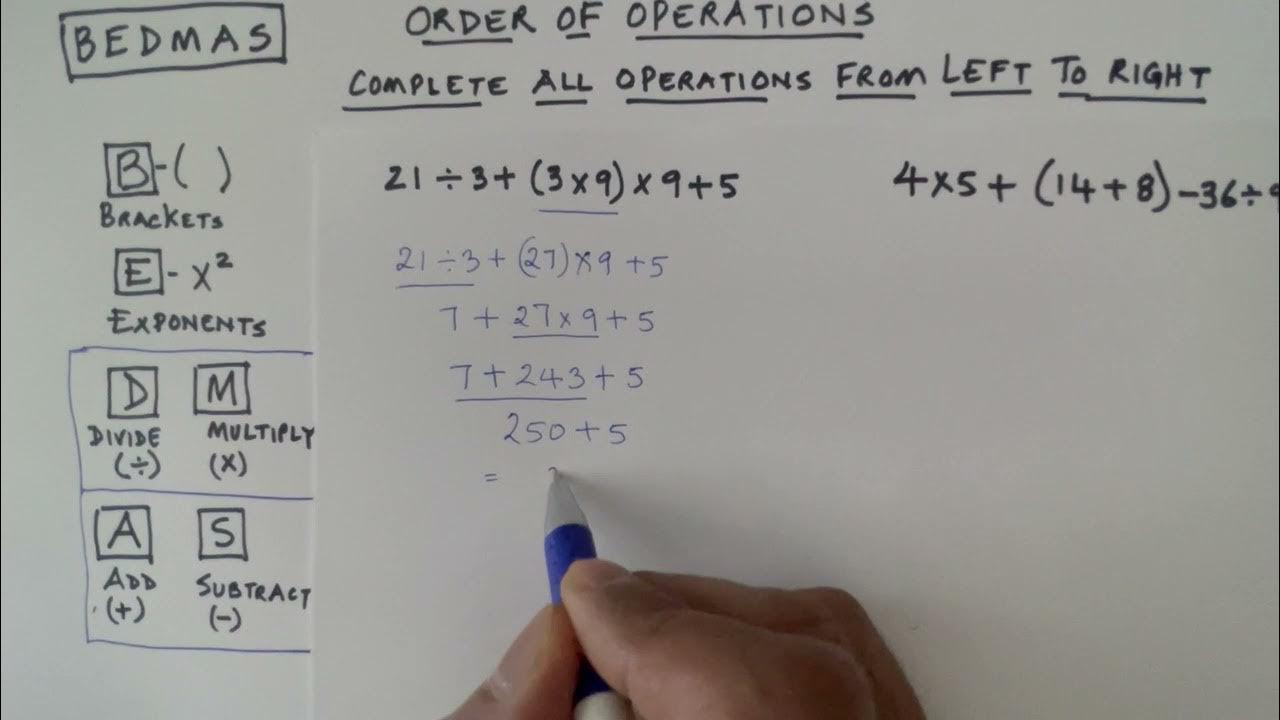 BEDMAS
ORDER OF OPERATIONS
COMPLETE ALL OPERATIONS FROM LEFT TO RIGHT
B - ( )
BRACKETS
E - x²
EXPONENTS
D M
DIVIDE MULTIPLY
(÷) (x)
A S
ADD SUBTRACT
(+) (-)
21 ÷ 3 + (3 x 9) x 9 + 5
21 ÷ 3 + (27) x 9 + 5
7 + 27 x 9 + 5
7 + 243 + 5
250 + 5
=
4 x 5 + (14 + 8) - 36 ÷ 9